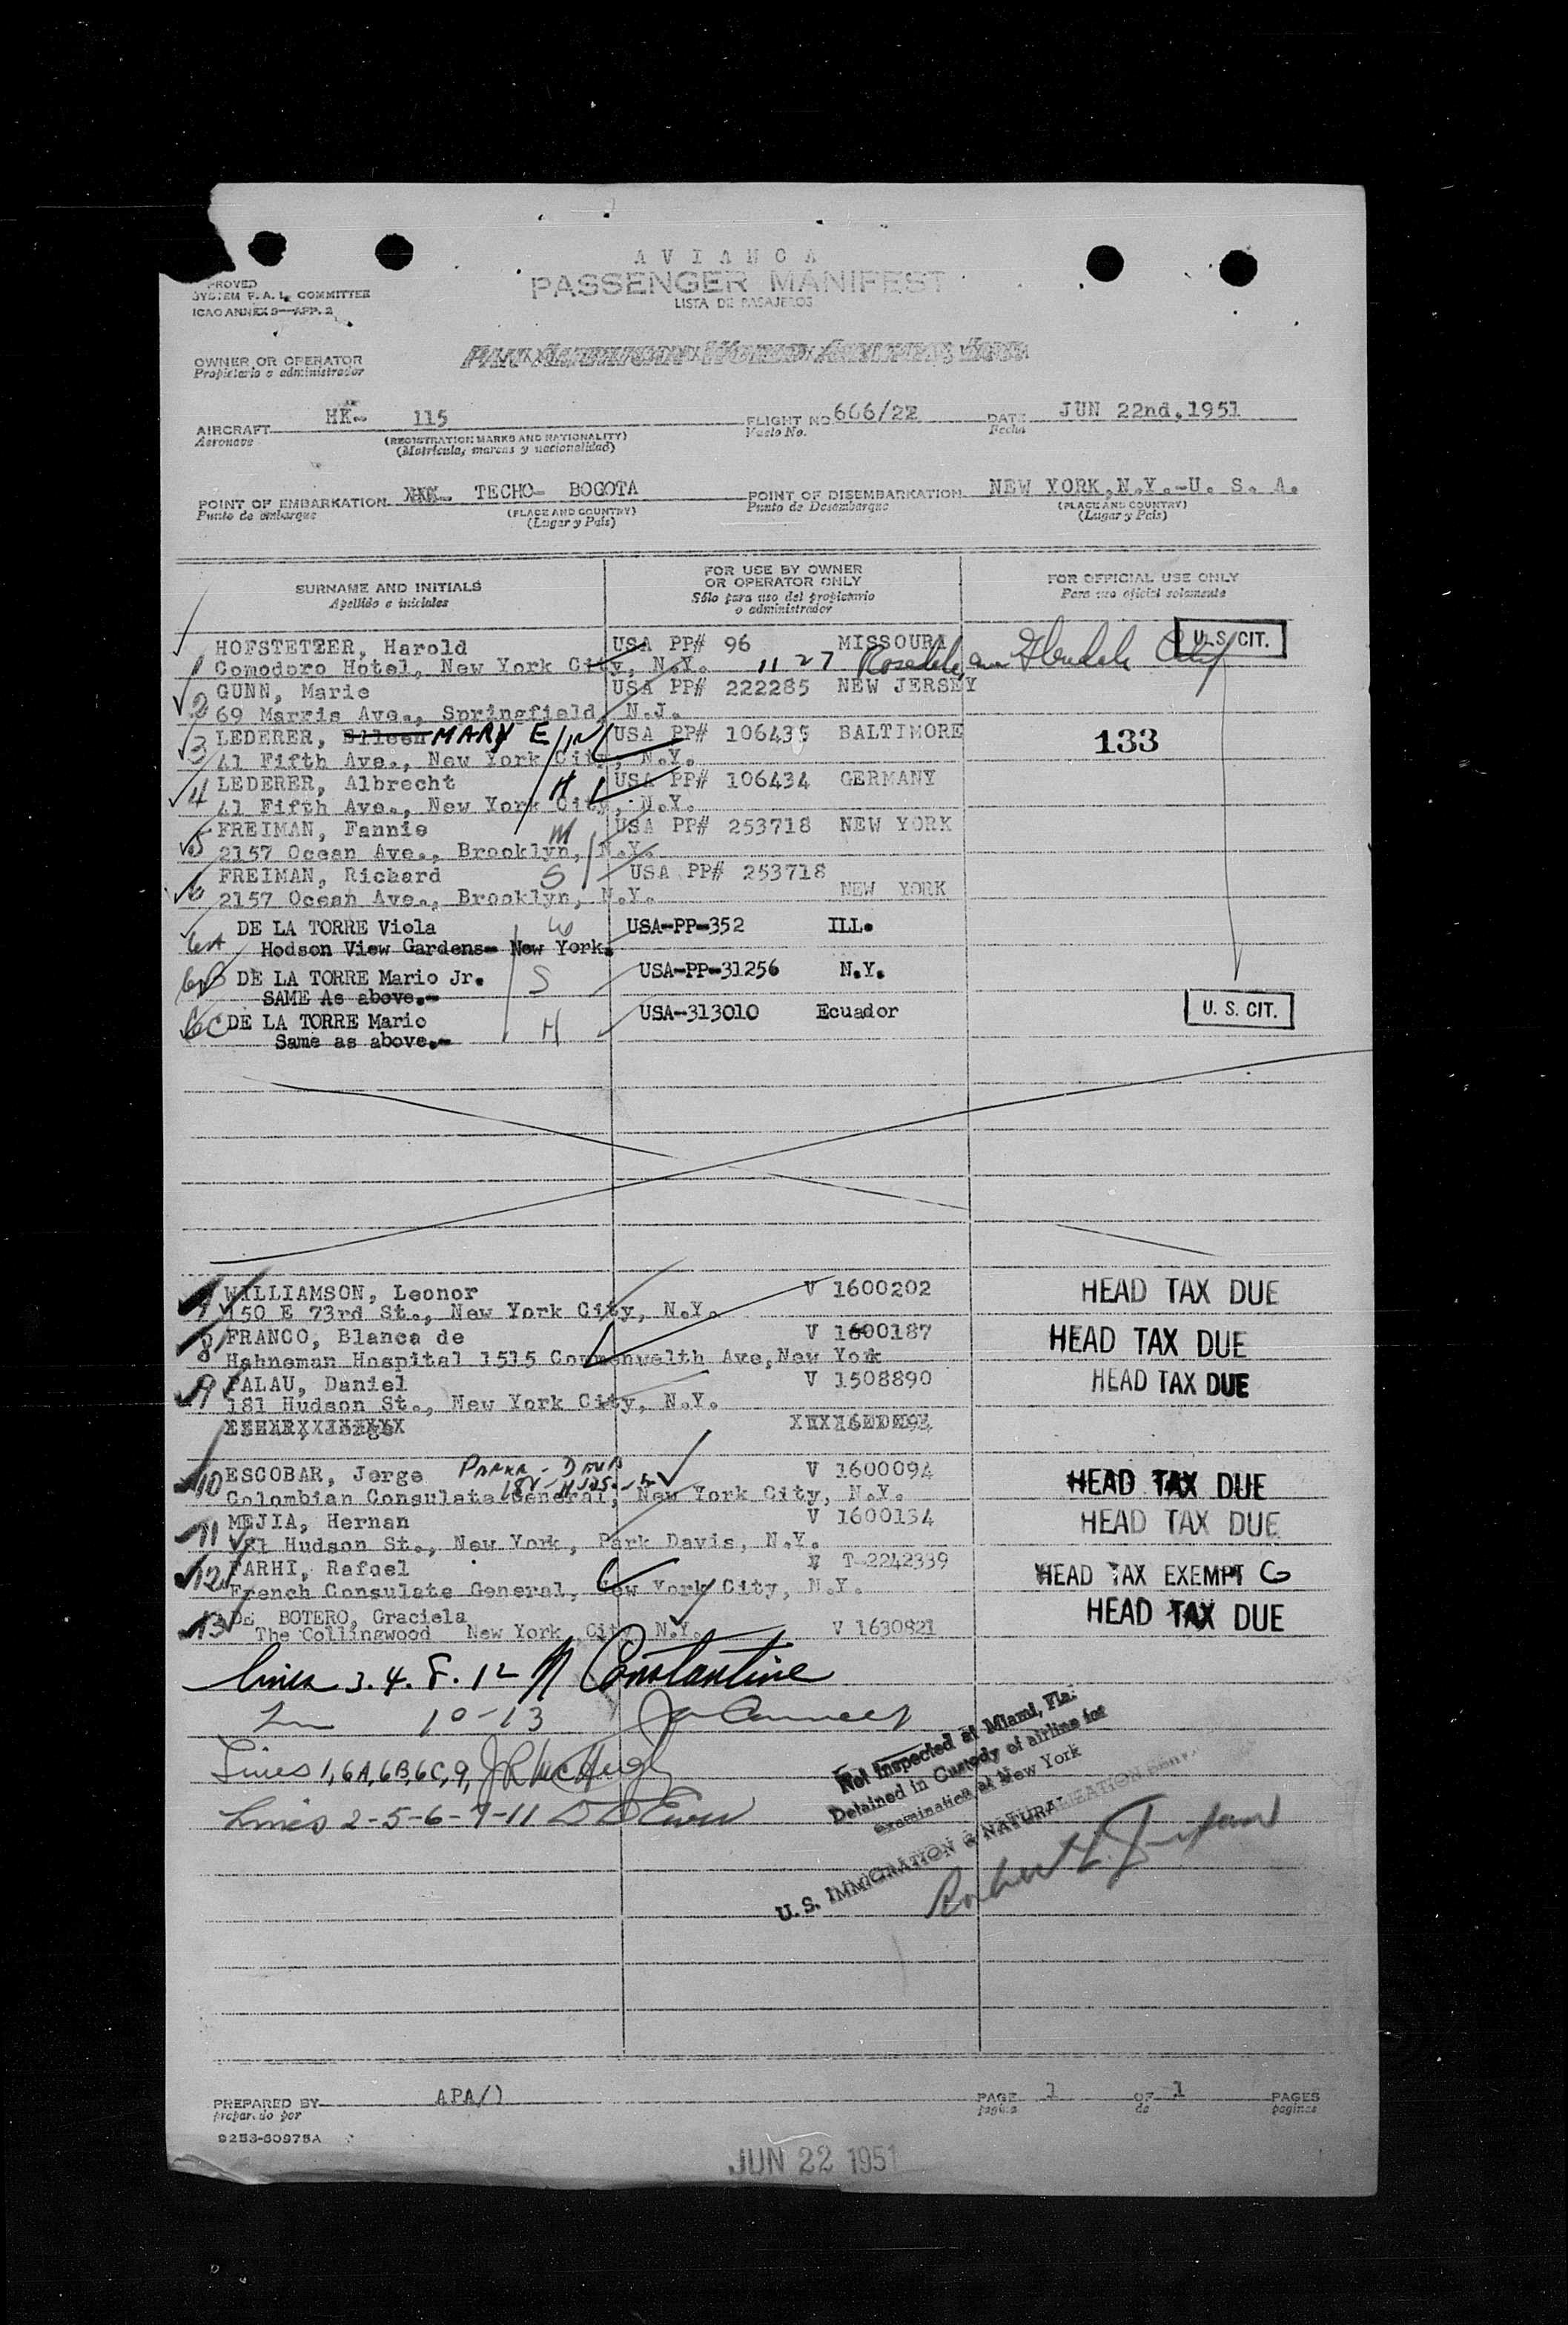 AVIANCA
PASSENGER MANIFEST
LISTA DE PASAJEROS
PROVED
SYSTEM F. A. L. COMMITTEE
ICAO ANNEX 9—APP. 2
OWNER OR OPERATOR
Propietario o administrador
AIRCRAFT HK- 115 FLIGHT NO 666/22 DATE JUN 22nd, 1951
Aeronave (REGISTRATION MARKS AND NATIONALITY) Vuelo No. Fecha
(Matrícula, marcas y nacionalidad)
POINT OF EMBARKATION TECHO- BOGOTA POINT OF DISEMBARKATION NEW YORK, N.Y.-U. S. A.
Punto de embarque (PLACE AND COUNTRY) Punto de Desembarque (PLACE AND COUNTRY)
(Lugar y País) (Lugar y País)
SURNAME AND INITIALS FOR USE BY OWNER OR OPERATOR ONLY FOR OFFICIAL USE ONLY
Apellido e iniciales Sólo para uso del propietario o administrador Para uso oficial solamente
HOFSTETZER, Harold USA PP# 96 MISSOURI U. S. CIT.
1 Comodoro Hotel, New York City, N.Y. 11 27 Glendale Calif
GUNN, Marie USA PP# 222285 NEW JERSEY
2 69 Marris Ave., Springfield, N.J.
LEDERER, Eileen MARY E USA PP# 106435 BALTIMORE 133
3 41 Fifth Ave., New York City, N.Y.
LEDERER, Albrecht H USA PP# 106434 GERMANY
4 41 Fifth Ave., New York City, N.Y.
FREIMAN, Fannie M USA PP# 253718 NEW YORK
5 2157 Ocean Ave., Brooklyn, N.Y.
FREIMAN, Richard S USA PP# 253718
6 2157 Ocean Ave., Brooklyn, N.Y. NEW YORK
DE LA TORRE Viola W USA-PP-352 ILL.
6A Hodson View Gardens- New York.
6B DE LA TORRE Mario Jr. S USA-PP-31256 N.Y.
SAME As above.-
6C DE LA TORRE Mario H USA-313010 Ecuador U. S. CIT.
Same as above.-
7 WILLIAMSON, Leonor V 1600202 HEAD TAX DUE
150 E 73rd St., New York City, N.Y.
8 FRANCO, Blanca de V 1600187 HEAD TAX DUE
Hahneman Hospital 1515 Commonwelth Ave, New York
9 PALAU, Daniel V 1508890 HEAD TAX DUE
181 Hudson St., New York City, N.Y.
10 ESCOBAR, Jorge V 1600094 HEAD TAX DUE
Colombian Consulate General, New York City, N.Y.
11 MEJIA, Hernan V 1600134 HEAD TAX DUE
181 Hudson St., New York, Park Davis, N.Y.
12 FARHI, Rafael T-2242339 HEAD TAX EXEMPT G
French Consulate General, New York City, N.Y.
13 DE BOTERO, Graciela HEAD TAX DUE
The Collingwood New York City N.Y. V 1630821
lines 3. 4. 8. 12 Constantine
10-13
Lines 1, 6A, 6B, 6C, 9, J R McHugh
Lines 2-5-6-7-11
Not inspected at Miami, Fla.
Detained in Custody of airline for
examination at New York
U. S. IMMIGRATION & NATURALIZATION
PREPARED BY APA/) PAGE 1 OF 1 PAGES
preparado por pagina de paginas
9253-60975A
JUN 22 1951